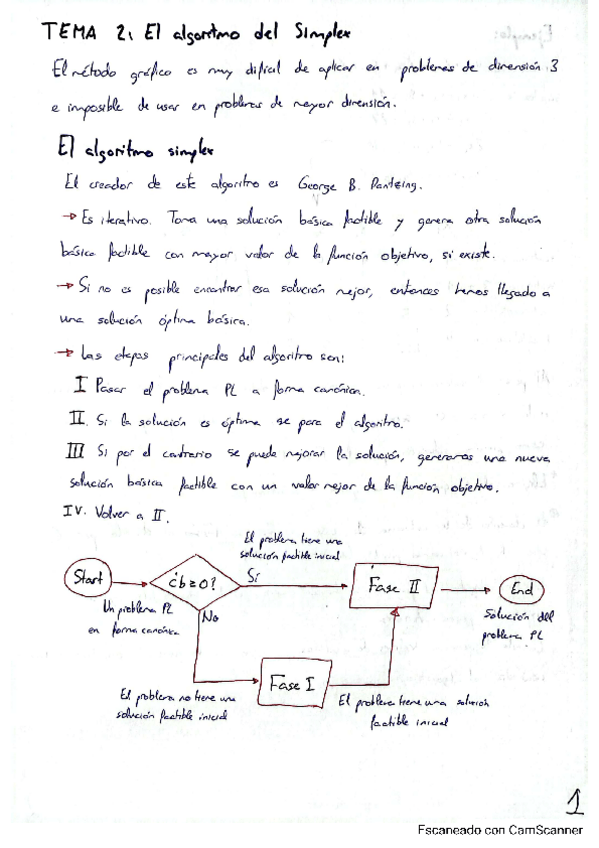 TEMA 2: El algoritmo del Simplex
El método gráfico es muy difícil de aplicar en problemas de dimensión 3
e imposible de usar en problemas de mayor dimensión.
El algoritmo simplex
El creador de este algoritmo es George B. Dantzing.
→ Es iterativo. Toma una solución básica factible y genera otra solución
básica factible con mayor valor de la función objetivo, si existe.
→ Si no es posible encontrar esa solución mejor, entonces hemos llegado a
una solución óptima básica.
→ Las etapas principales del algoritmo son:
I Pasar el problema PL a forma canónica.
II. Si la solución es óptima se para el algoritmo.
III Si por el contrario se puede mejorar la solución, generamos una nueva
solución básica factible con un valor mejor de la función objetivo.
IV. Volver a II.
El problema tiene una
solución factible inicial
Start
¿b≥0?
Sí
Fase II
End
Un problema PL
en forma canónica
No
Solución del
problema PL
Fase I
El problema no tiene una
solución factible inicial
El problema tiene una solución
factible inicial
1
Escaneado con CamScanner